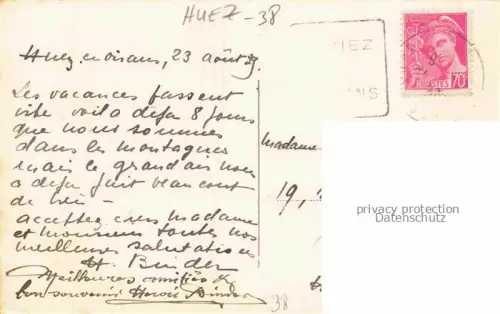 HUEZ-38
Huez en oisans, 23 août 39
Les vacances passent
vite voila deja 8 jours
que nous sommes
dans les montagnes
mais le grand air nous
a deja fait beaucoup
de bien -
acceptez chers madame
et monsieur toutes nos
meilleures salutations
H. Binder
Meilleures amitiés &
bon souvenir Binder
38
UEZ
NS
POSTES 70c
madame
19,
privacy protection
Datenschutz